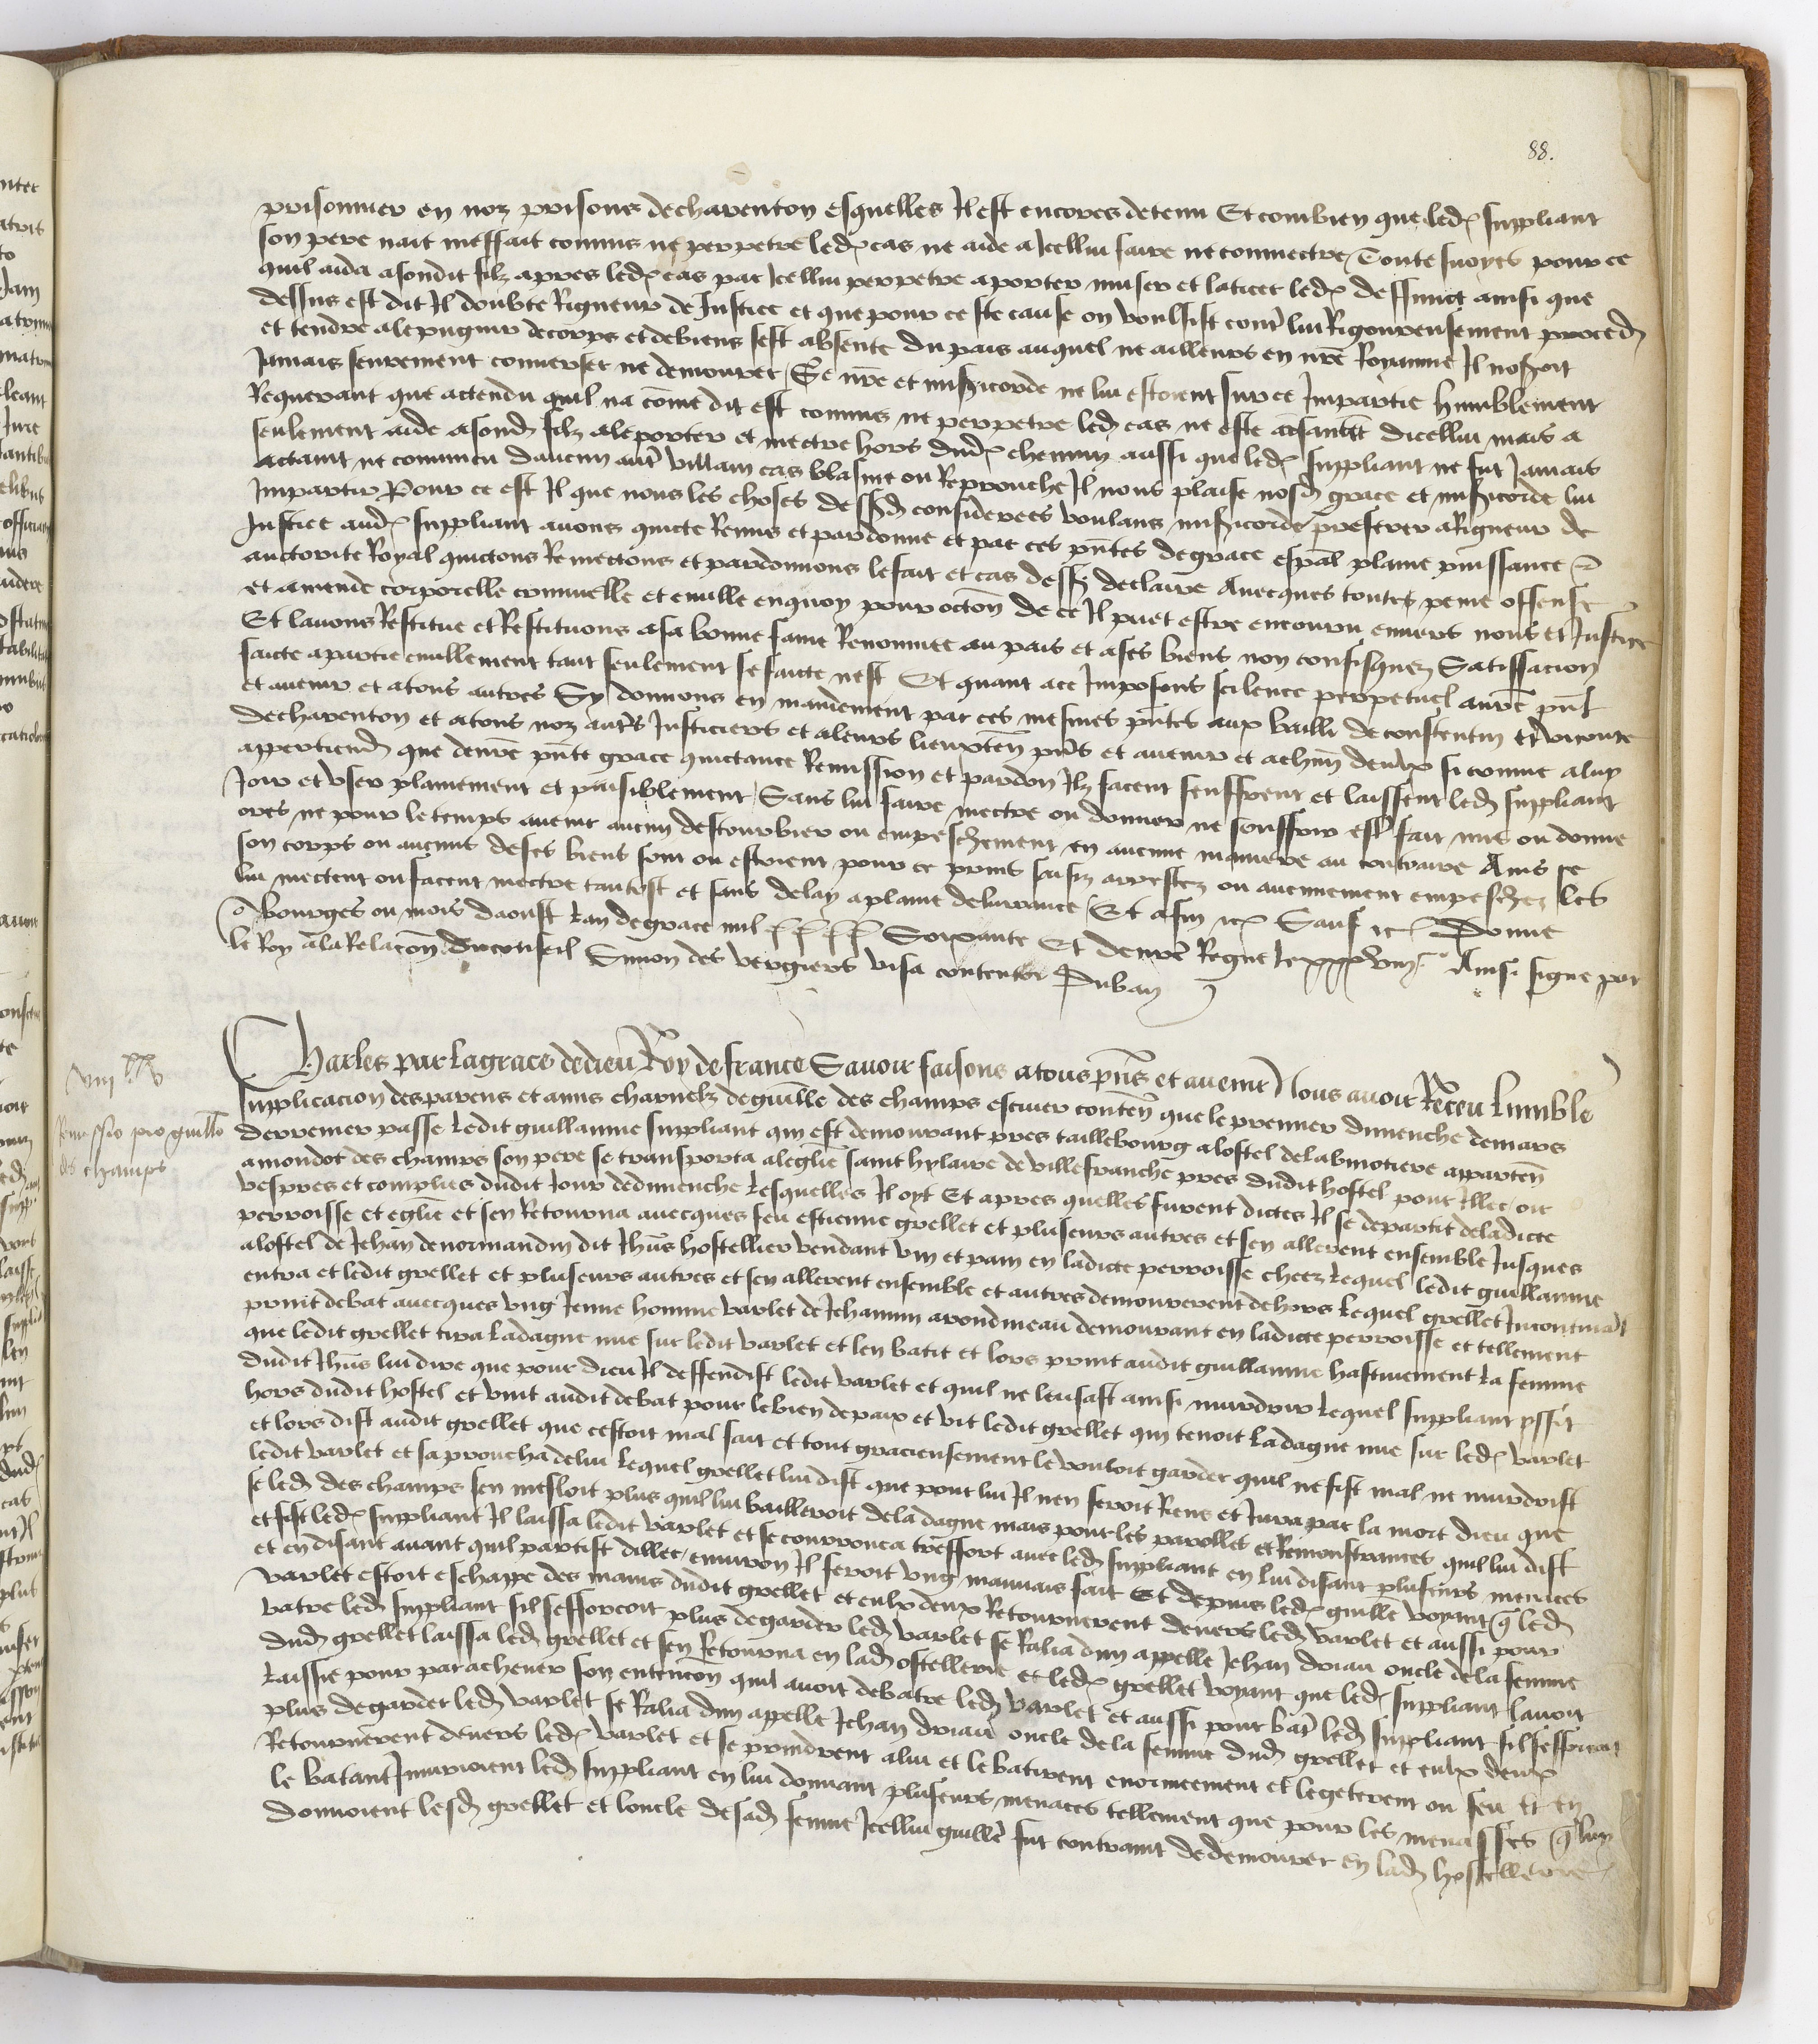 88.
prisonnier en noz prisons de charenton esquelles Il est encores detenu Et combien que led suppliant
son pere nait meffait commis ne perpetre led cas ne aide a Icellui faire ne commectre Toutesvoyes pour ce
quil aida a sondit filz apres led cas par Icellui perpetre a porter muser et laticer led deffunct ainsi que
dessus est dit Il doubte Rigueur de Justice et que pour ceste cause on voulsist contr lui Rigoureusement proced
et tendre a le pugnir de corps et de biens sest absente du pais auquel ne ailleurs en nre Royaume Il noseroit
Jamais seurement converser ne demourer Se nre et misericorde ne lui estoient sur ce Imparties humblement
Requerant que actendu quil na come dit est commis ne perpetre led cas ne este dicellui mais a
seulement aide a sond filz a le porter et mectre hors dud chemin aussi que led suppliant ne fut Jamais
actaint ne convaincu daucun autr villain cas blasme ou Reprouche Il nous plaise nosd grace et misericorde lui
Impartir Pour ce est Il que nous les choses dessusd considerees voulans misericorde preferer a Rigueur de
Justice aud suppliant avons quicte Remis et pardonne et par ces pntes de grace espal plaine puissance et
auctorite Royal quictons Remectons et pardonnons le fait et cas dess declaire Avecques toute peine offense
et amende corporelle criminelle et civille en quoy pour occon de ce Il puet estre encouru envers nous et Justice
Et lavons Restitue et Restituons a sa bonne fame Renommee au pais et a ses biens non confisquez Satisfacion
faicte a partie civillement tant seulement se faicte nest Et quant a ce Imposons scilence perpetuel a nre pnt
et avenir et a tous autres Sy donnons en mandement par ces mesmes pntes aux bailli de constentin et viconte
de charenton et a tous noz autrs Justiciers et a leurs lieuxten pns et avenir et a chun deulx si comme a luy
appertiend que de nre pnte grace quictance Remission et pardon Ilz facent seuffrent et laissent led suppliant
Joir et user plainement et paisiblement Sans lui faire mectre ou donner ne souffrir estre fait mis ou donne
ores ne pour le temps avenir aucun destourbier ou empeschement en aucune maniere au contraire Ains se
son corps ou aucuns de ses biens sont ou estoient pour ce prins saisiz arrestez ou aucunement empeschez les
lui mectent ou facent mectre tantost et sans delay a plaine delivrance Et afin etc Sauf etc Donne
a Bourges ou mois daoust Lan de grace mil cccc Soixante Et de nre Regne le xxxviii.e Ainsi signe par
le Roy a la Relacon du conseil Simon des vergiers visa contentor Duban
viii xx v
Remissio pro guillo
des champs
Charles par la grace de dieu Roy de france Savoir faisons a tous pns et avenir Nous avoir Receu lumble
supplicacion des parens et amis charnelz de guille des champs escuier conten que le premier dimenche de mars
derrenier passe ledit guillaume suppliant qui est demourant pres taillebourg a lostel de labmotiere apparten
a mondot des champs son pere se transporta a leglise saint hylaire de villefranche pres dudit hostel pour Illec oir
vespres et complies dudit Jour de dimenche Lesquelles Il oyt Et apres quelles furent dictes Il se departit de ladicte
perroisse et eglie et sen Retourna avecques feu estienne grellet et plusieurs autres et sen allerent ensemble Jusques
a lostel de Jehan de normandin dit Jhus hostellier vendant vin et pain en ladicte perroisse cheez Lequel ledit guillaume
entra et ledit grellet et plusieurs autres et sen allerent ensemble et autres demourerent dehors Lequel grellet Incontinant
print debat avecques ung Jeune homme varlet de Jehannin arondineau demourant en ladicte perroisse et tellement
que ledit grellet tira La dague nue sur ledit varlet et len batit et lors print audit guillaume hastivement La femme
dudit Jhus lui dire que pour dieu Il deffendist ledit varlet et quil ne leussast ainsi murdrir Lequel suppliant yssit
hors dudit hostel et vint audit debat pour le bien de paix et vit ledit grellet qui tenoit La dague nue sur led varlet
et lors dist audit grellet que cestoit mal fait et tout gracieusement le vouloit garder quil ne fist mal ne murdrist
ledit varlet et saproucha de lui Lequel grellet lui dist que pour lui Il nen feroit Riens et Jura par la mort dieu que
se led des champs sen mesloit plus quil lui bailleroit de la dague mais pour les parolles et Remonstrances quil lui dist
et fist led suppliant Il laissa ledit varlet et se courrouca tresfort avec led suppliant en lui disant plusieurs menaces
et en disant avant quil partist dillec environ Il feroit ung mauvais fait Et depuis led guille voyant q led
varlet estoit eschappe des mains dudit grellet et eulx deux Retournerent devers led varlet et aussi pour
batre led suppliant sil sefforcoit plus de garder led varlet se Ralia dun appelle Jehan driau oncle de la femme
dud grellet laissa led grellet et sen Retourna en lad ostellerie et led grellet voyant que led suppliant lavoit
Laissie pour parachever son entencon quil avoit de batre led varlet et aussi pour batr led suppliant sil sefforcoit
plus de garder led varlet se Ralia dun appelle Jehan driau oncle de la femme dud grellet et eulx deux
Retournerent devers led varlet et se prindrent a lui et le batirent enormeement et le getterent ou feu et en
le batant Injurioient led suppliant en lui donnant plusieurs menaces tellement que pour les menasses q luy
donnoient lesd grellet et loncle de sad femme Icellui guille fut contraint de demourer en lad hostellerie